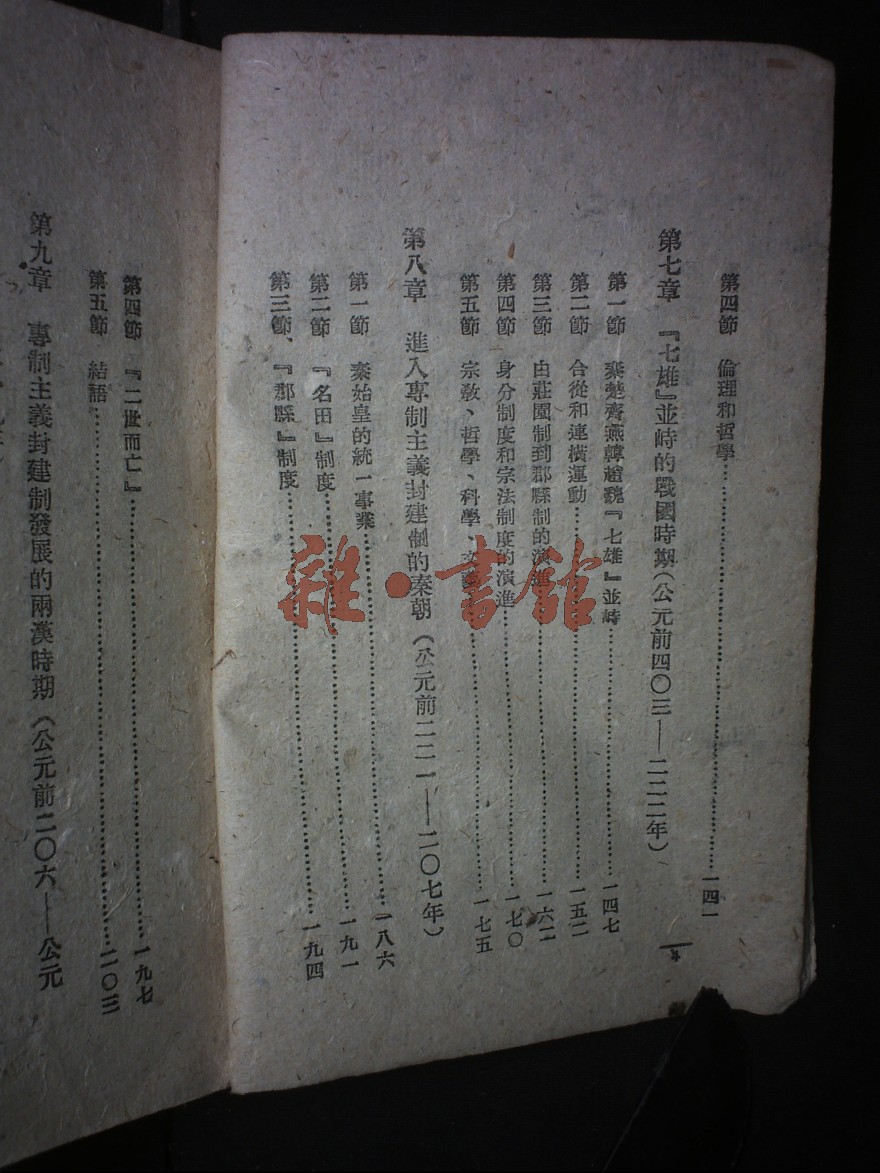 第四節 倫理和哲學……一四一
第七章 『七雄』並峙的戰國時期(公元前四〇三——二二二年)
第一節 秦楚齊燕韓趙魏『七雄』並峙……一四七
第二節 合從和連橫運動……一五二
第三節 由莊園制到郡縣制的演進……一六二
第四節 身分制度和宗法制度的演進……一七〇
第五節 宗敎、哲學、科學、……一七五
第八章 進入專制主義封建制的秦朝(公元前二二一——二〇七年)
第一節 秦始皇的統一事業……一八六
第二節 『名田』制度……一九一
第三節、『郡縣』制度……一九四
第四節 『二世而亡』……一九七
第五節 結語……二〇三
第九章 專制主義封建制發展的兩漢時期(公元前二〇六——公元
雜·書館